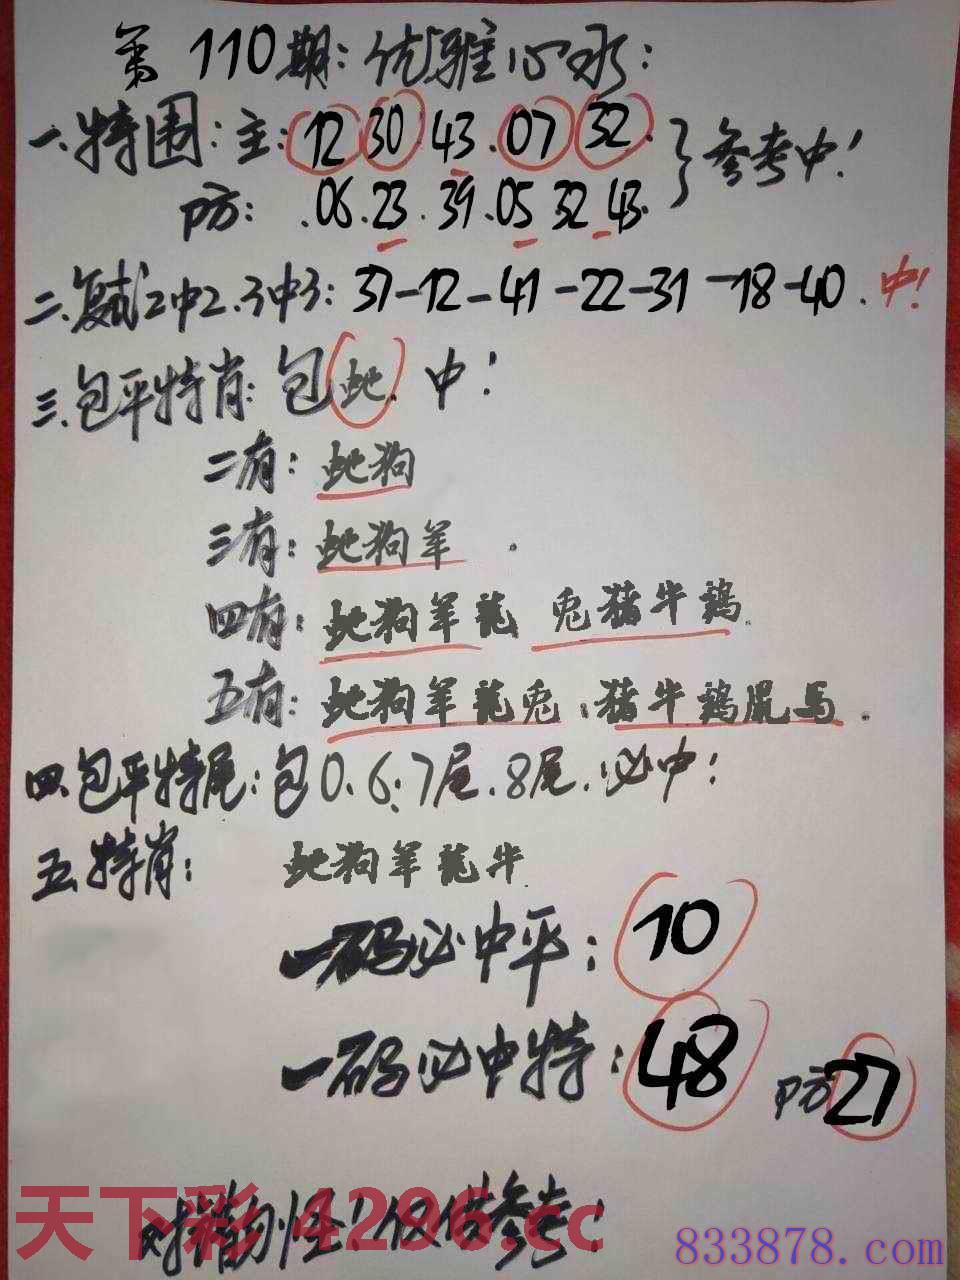 第110期：优雅心水：
一.特围：主：12 30 43.07 32.}参考中！
防：.06.23.39.05 32 43.
二.复试2中2.3中3：37-12-41-22-31-18-40.中！
三.包平特肖：包蛇.中！
二有：蛇狗
三有：蛇狗羊.
四有：蛇狗羊龍 兔猪牛鸡.
五有：蛇狗羊龍兔.猪牛鸡鼠马.
四.包平特尾：包0.6.7尾.8尾.必中！
五.特肖：蛇狗羊龍牛.
一码必中平：10
一码必中特：48 防27
天下彩 4296.cc
料勿怪！仅供参考！
833878.com